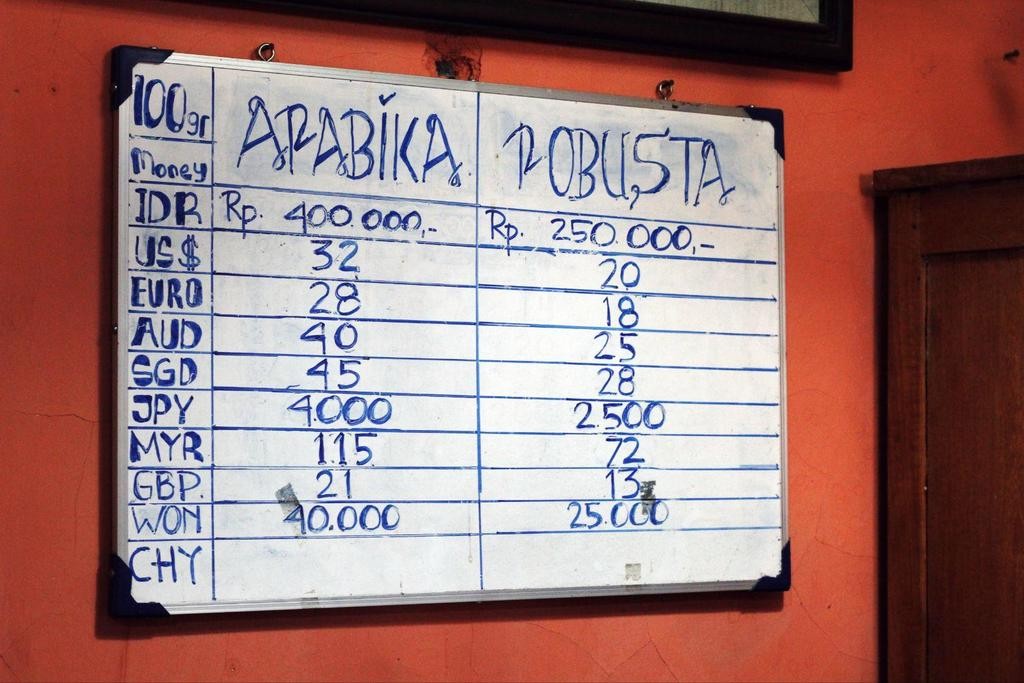 100gr ARABIKA ROBUSTA
Money
IDR Rp. 400.000,- Rp. 250.000,-
US$ 32 20
EURO 28 18
AUD 40 25
SGD 45 28
JPY 4000 2.500
MYR 115 72
GBP. 21 13
WON 40.000 25.000
CHY